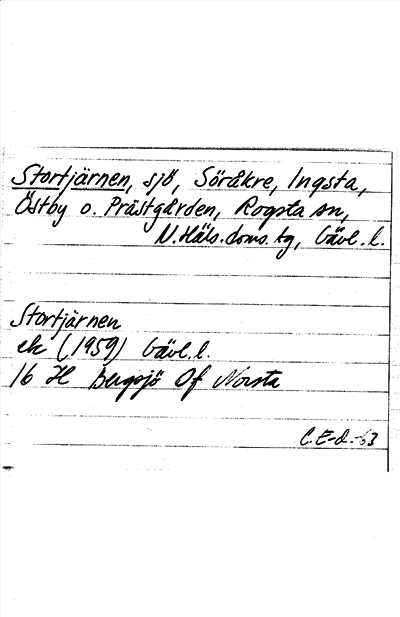 Stortjärnen, sjö, Söråkre, Ingsta,
Östby o. Prästgården, Rogsta sn,
N. Häls. doms. tg, Gävl. l.
Stortjärnen
ek (1959) Gävl. l.
16 H Bergsjö Of Norsta
C.E-d.-63